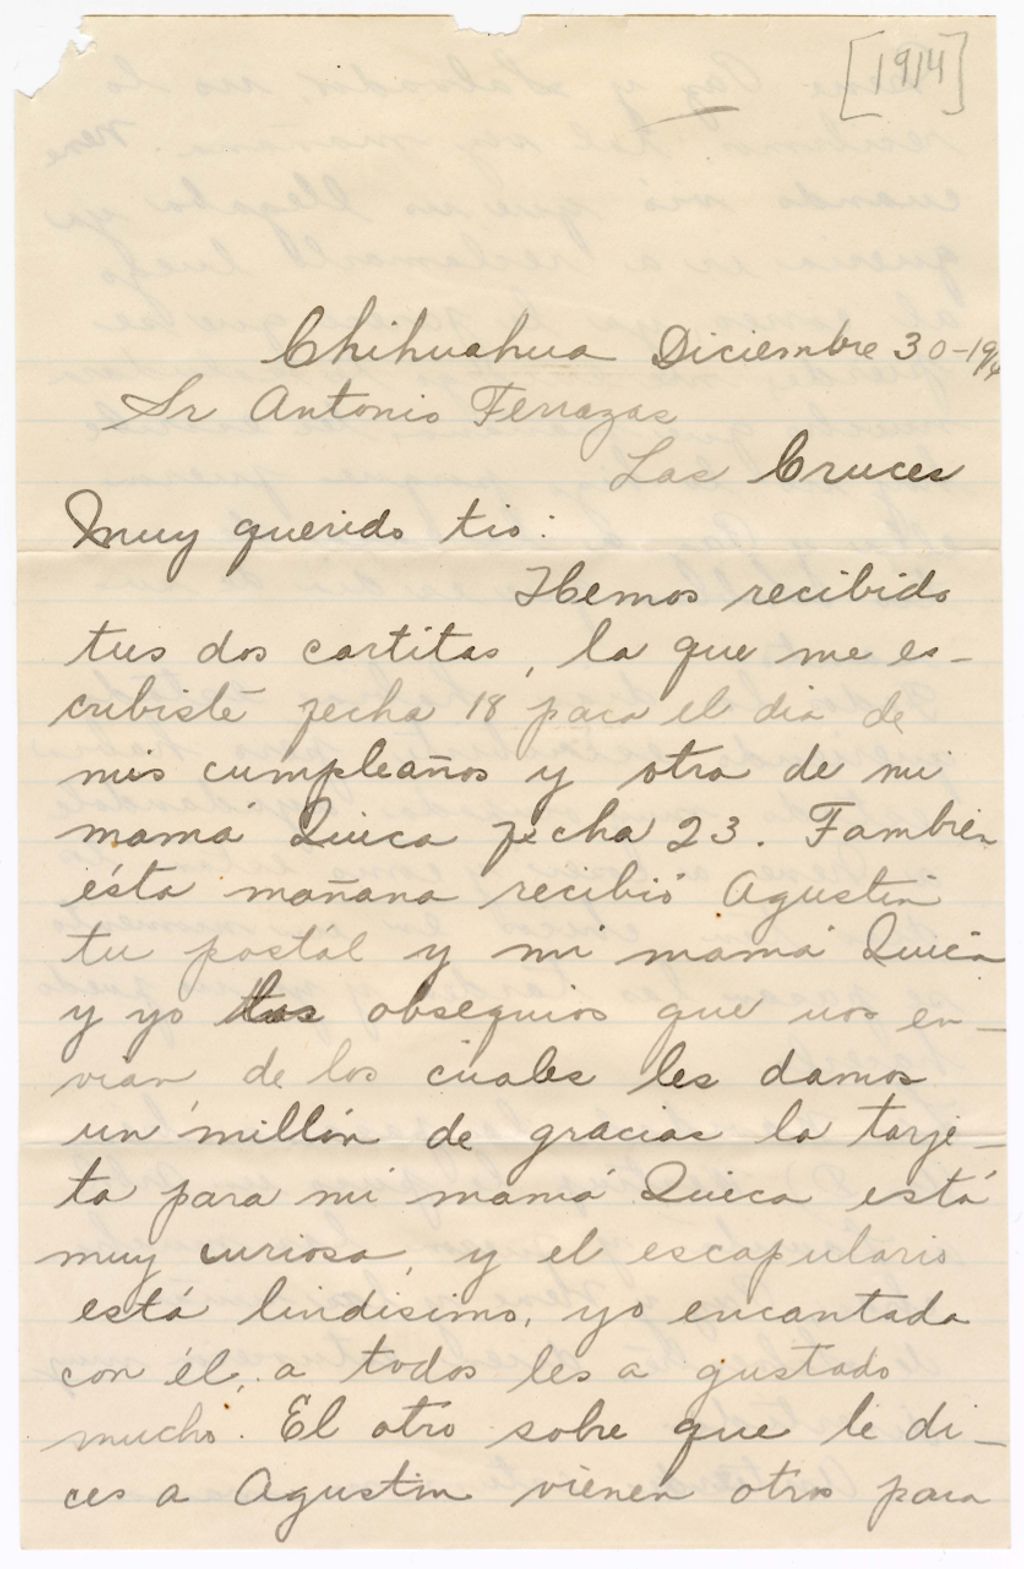 [1914]
Chihuahua Diciembre 30-1914
Sr Antonio Terrazas
Las Cruces
Muy querido tio:
Hemos recibido
tus dos cartitas, la que me es-
cribiste fecha 18 para el dia de
mis cumpleaños y otra de mi
mamá Quica fecha 23. Tambien
ésta mañana recibió Agustin
tu postál y mi mamá Quica
y yo los obsequios que nos en-
vian, de los cuales les damos
un millón de gracias la tarje-
ta para mi mamá Quica está
muy curiosa, y el escapulario
está lindisimo, yo encantada
con él, a todos les a gustado
mucho. El otro sobre que le di-
ces a Agustin vienen otros para